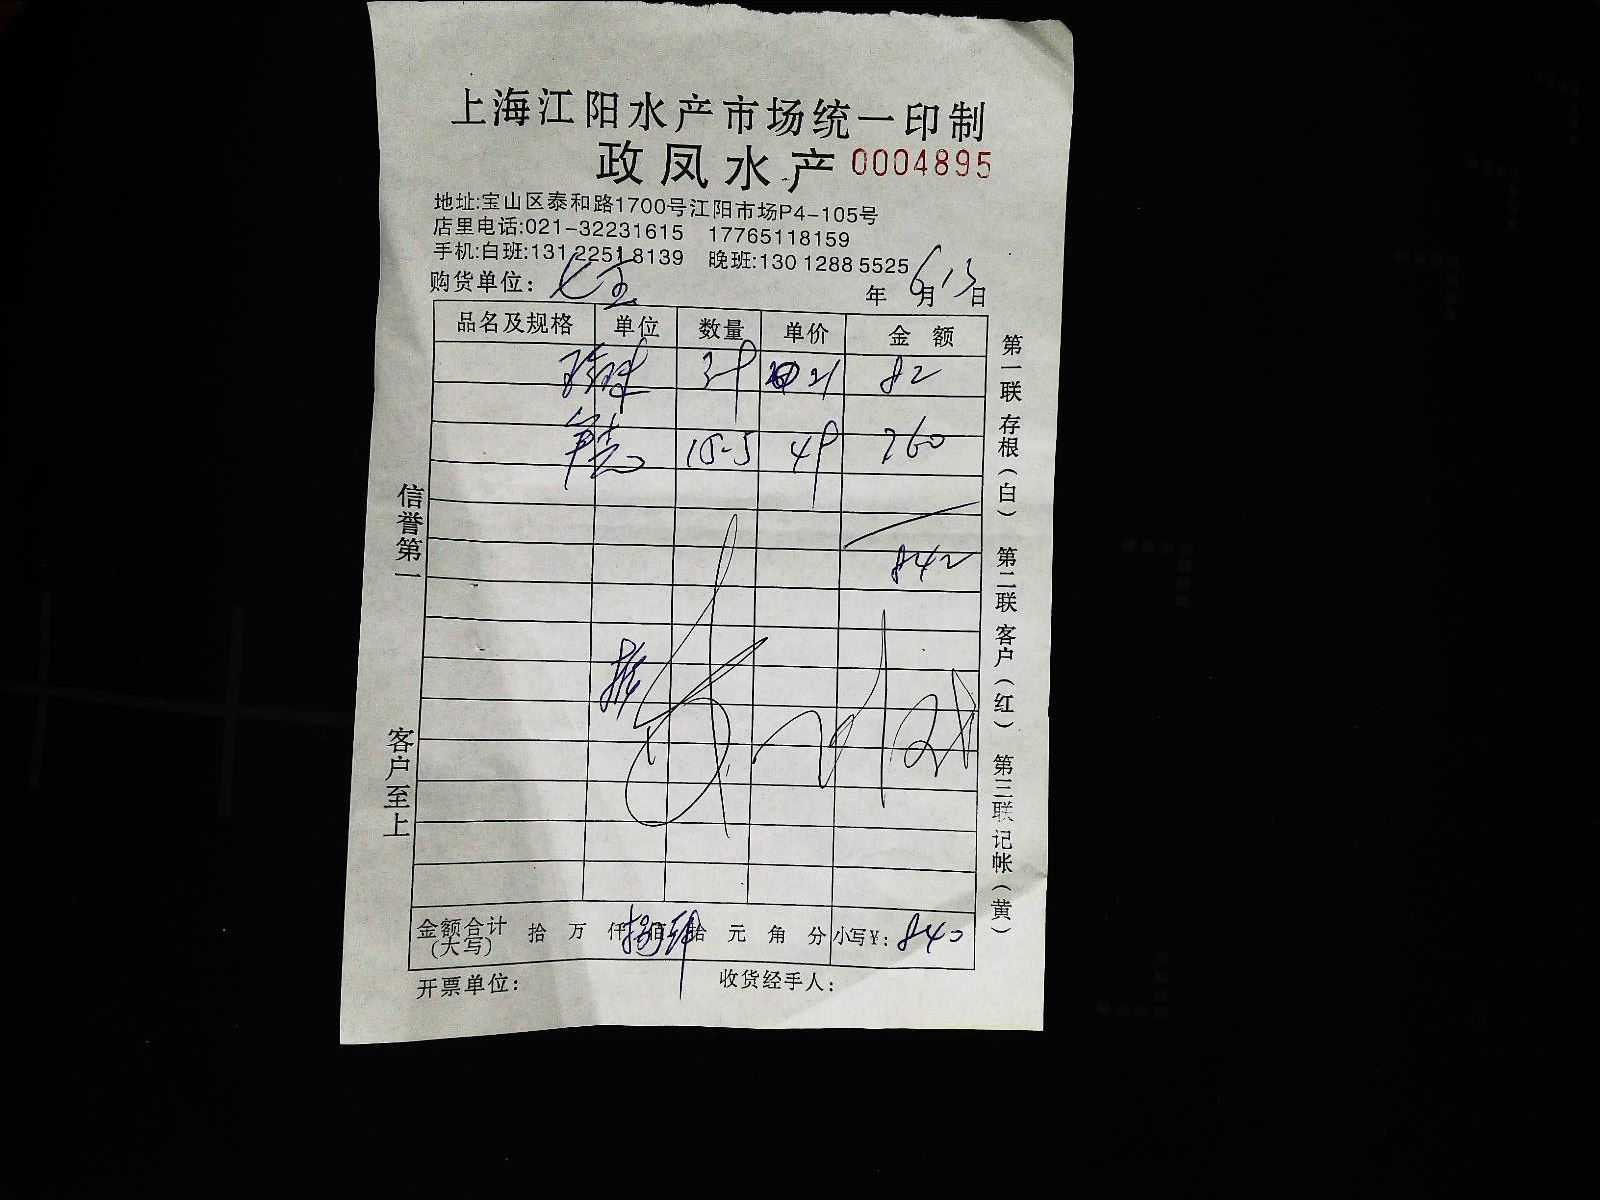 上海江阳水产市场统一印制
政凤水产 0004895
地址:宝山区泰和路1700号江阳市场P4-105号
店里电话:021-32231615 17765118159
手机:白班:131 2251 8139 晚班:130 1288 5525
购货单位: 年 6月13日
品名及规格 单位 数量 单价 金额
21 82
15-5 49 760
842
信誉第一
客户至上
第一联 存根(白) 第二联 客户(红) 第三联 记帐(黄)
金额合计(大写) 拾 万 仟 佰 拾 元 角 分 小写¥: 840
开票单位: 收货经手人: